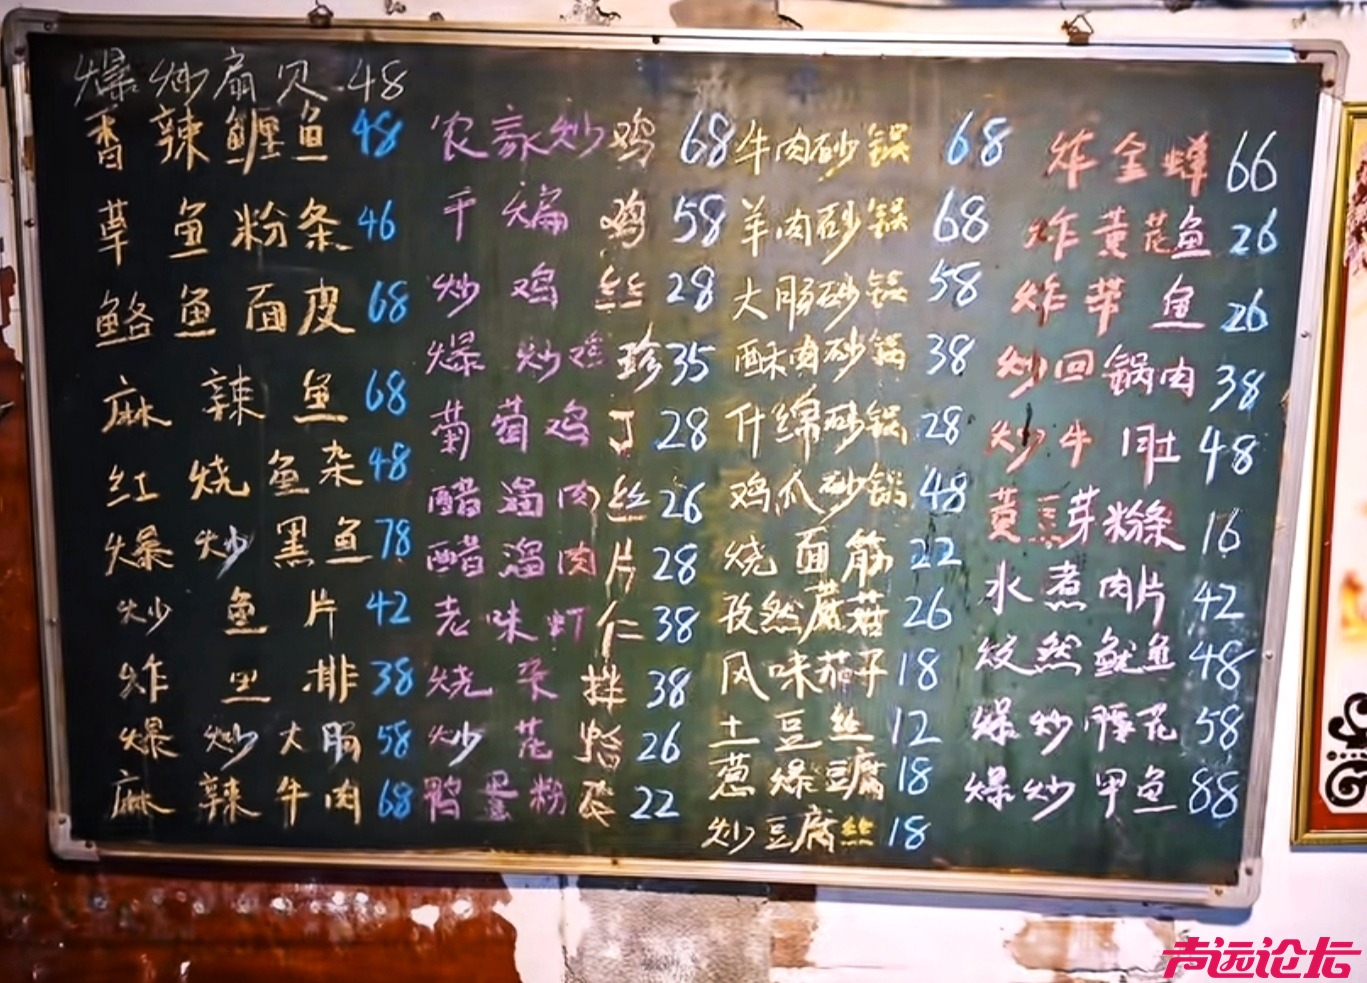 爆炒扇贝 48
香辣鲤鱼 48
草鱼粉条 46
鲶鱼面皮 68
麻辣鱼 68
红烧鱼杂 48
爆炒黑鱼 78
炒鱼片 42
炸里排 38
爆炒大肠 58
麻辣牛肉 68
农家炒鸡 68
干煸鸡 58
炒鸡丝 28
爆炒鸡珍 35
葡萄鸡丁 28
醋溜肉丝 26
醋溜肉片 28
老味虾仁 38
烧杂拌 38
炒花蛤 26
鸭蛋粉 22
牛肉砂锅 68
羊肉砂锅 68
大肠砂锅 58
酥肉砂锅 38
什绵砂锅 28
鸡爪砂锅 48
烧面筋 22
孜然蘑菇 26
风味茄子 18
土豆丝 12
葱爆豆腐 18
炒豆腐丝 18
炸金蝉 66
炸黄花鱼 26
炸带鱼 26
炒回锅肉 38
炒牛肚 48
黄豆芽粉条 16
水煮肉片 42
然鱿鱼 48
爆炒腰花 58
爆炒甲鱼 88
声远论坛